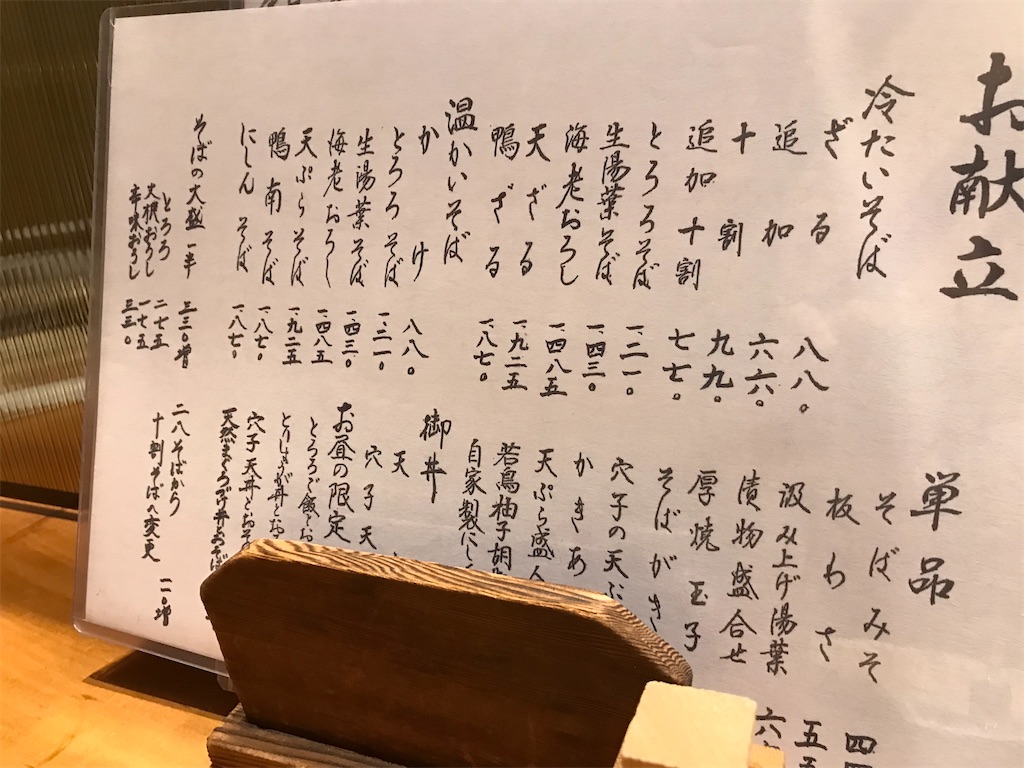 お献立
冷たいそば
ざる 八八〇
追加 六六〇
十割 九九〇
追加十割 七七〇
とろろそば 一、二一〇
生湯葉そば 一、四三〇
海老おろし 一、四八五
天ざる 一、九二五
鴨ざる 一、八七〇
温かいそば
かけ 八八〇
とろろそば 一、二一〇
生湯葉そば 一、四三〇
海老おろし 一、四八五
天ぷらそば 一、九二五
鴨南そば 一、八七〇
にしんそば 一、八七〇
そばの大盛 一半 三三〇増
とろろ 二七五
大根おろし 一七五
辛味おろし 三三〇
単品
そばみそ
板わさ
汲み上げ湯葉
漬物盛合せ
厚焼玉子
そばがき
穴子の天ぷ
かきあ
天ぷら盛
若鳥柚子胡
自家製にし
御丼
天
穴子天
お昼の限定
とろろご飯とお
穴子天丼とおそ
二八そばから
十割そばへ変更 一一〇増